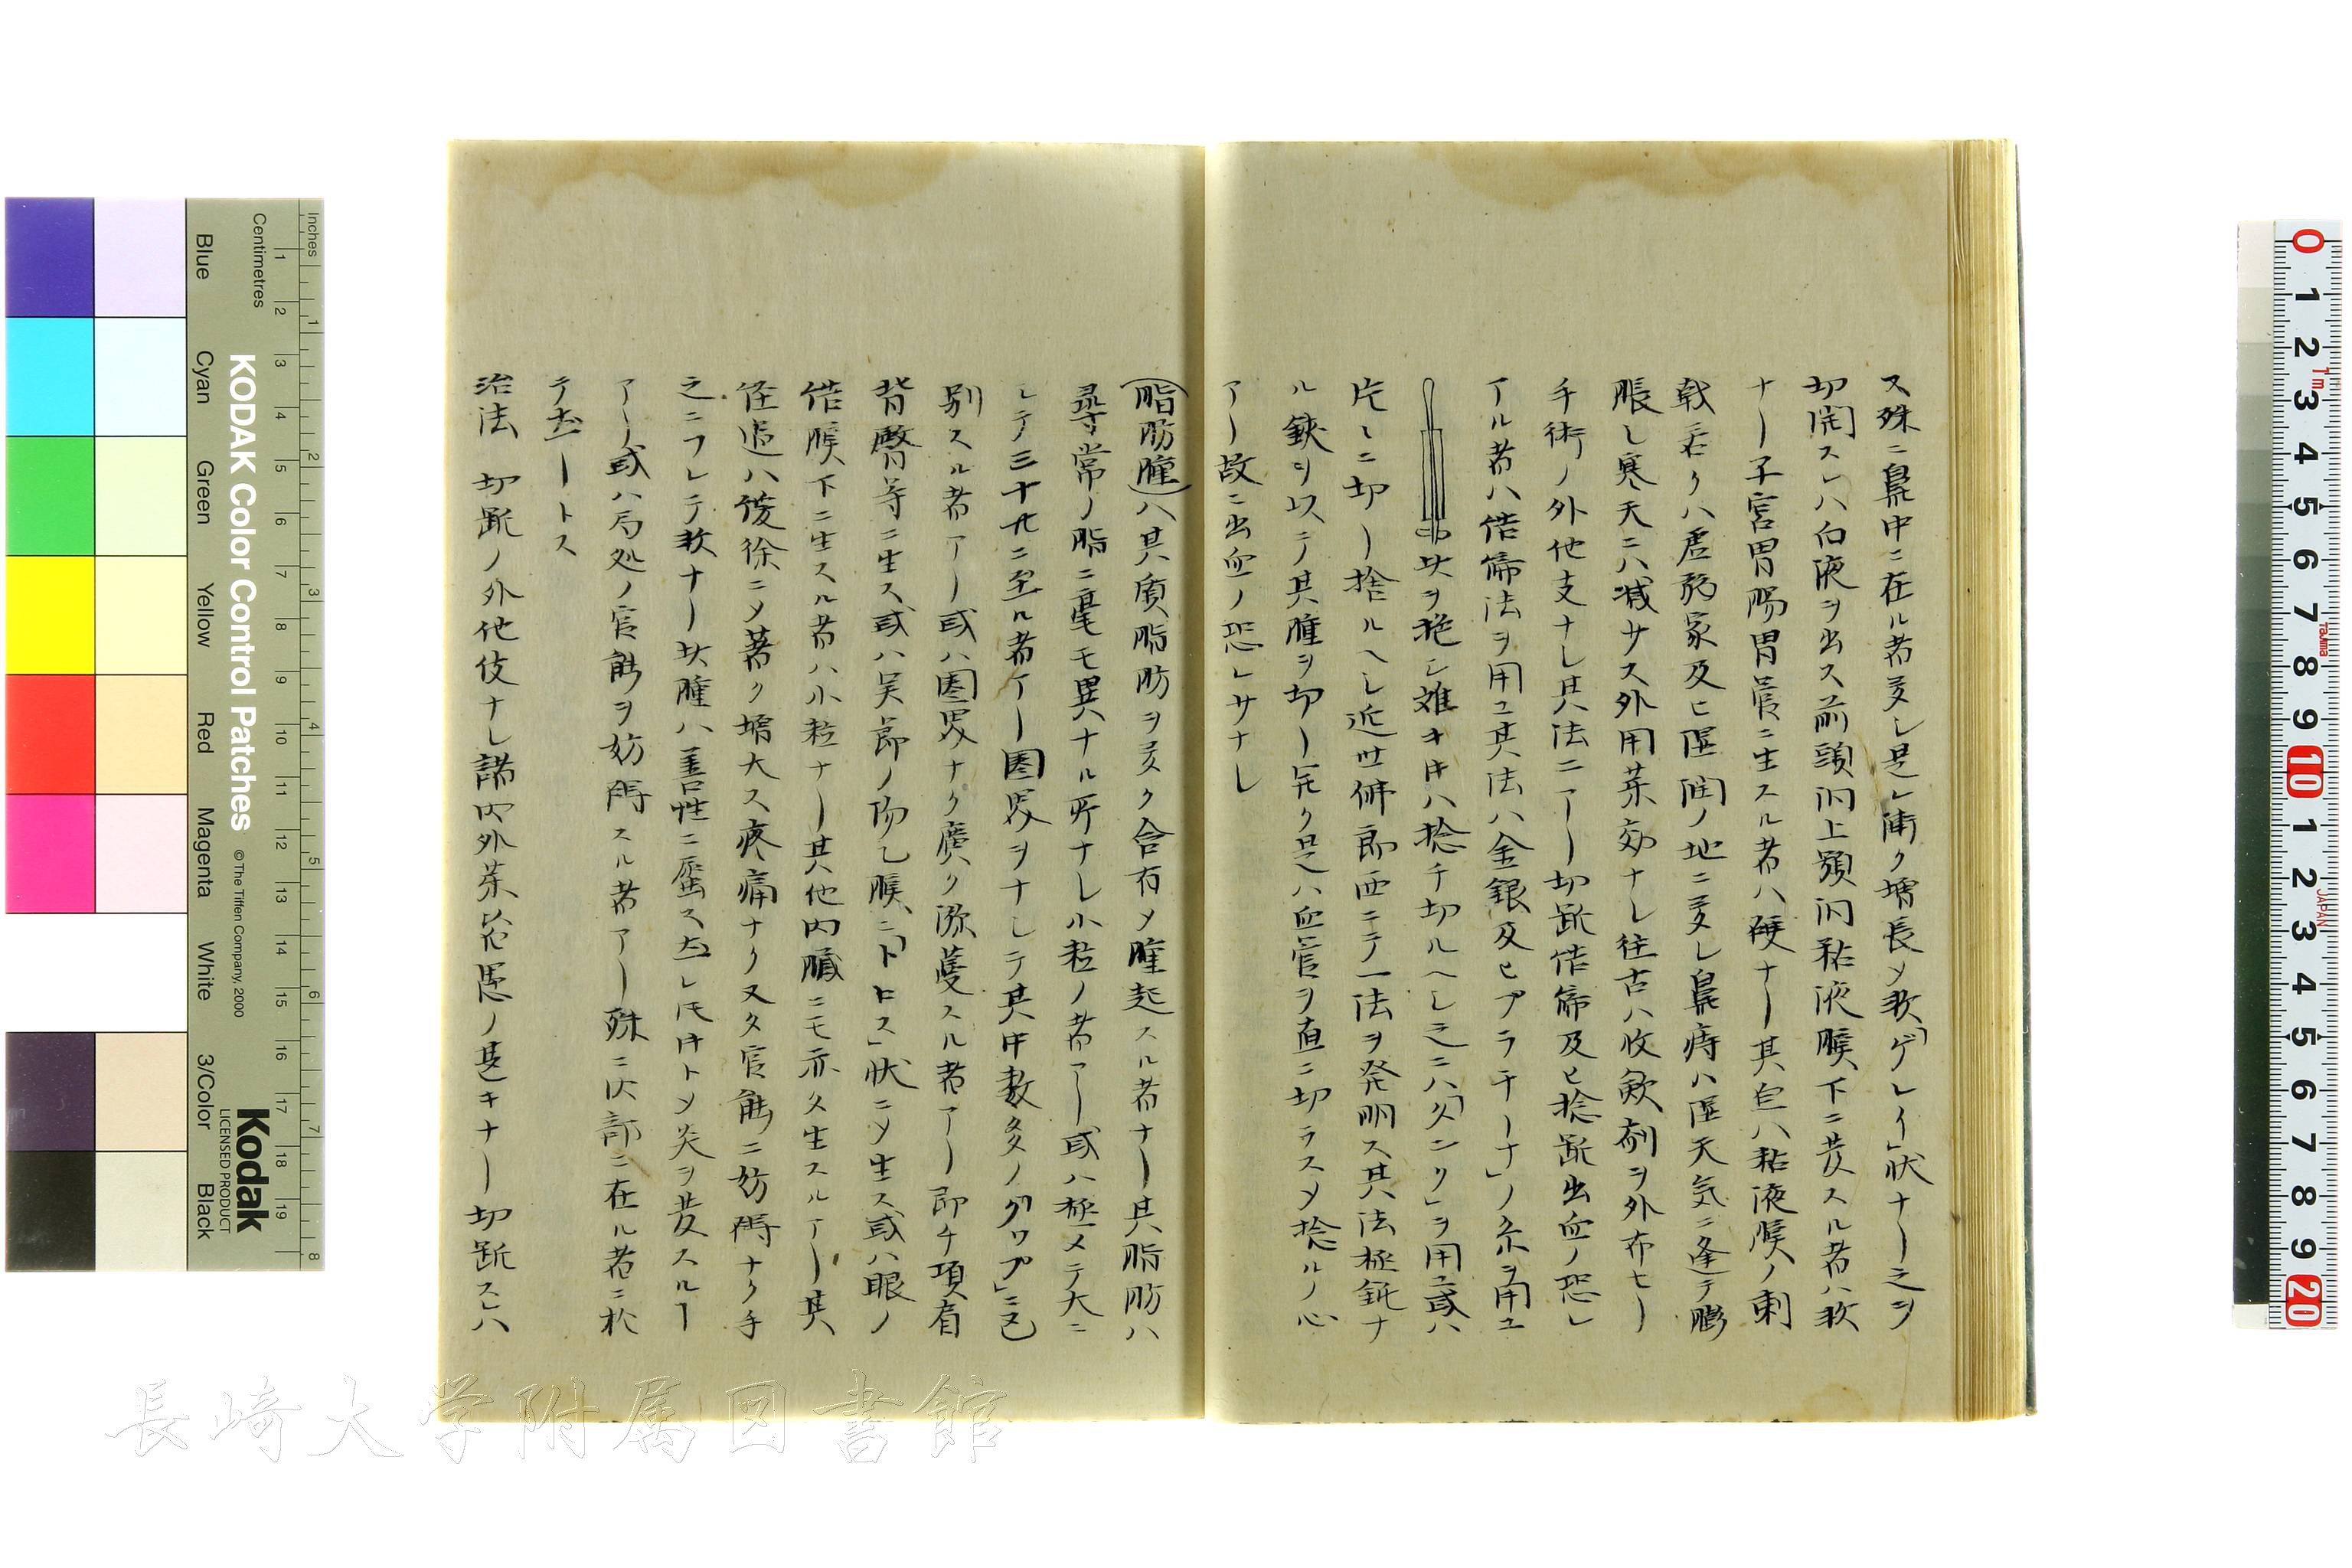 ス殊ニ鼻中ニ在ル者多シ是レ漸ク増長〆軟「ゲレイ」状ナリ之ヲ
切開スレハ白液ヲ出ス前頭洞上顎洞粘液膜下ニ発スル者ハ軟
ナリ子宮胃腸胃管ニ生スル者ハ硬ナリ其因ハ粘液膜ノ刺
戟若クハ虚弱家及ヒ湿潤ノ地ニ多シ鼻痔ハ湿天気ニ逢テ膨
脹シ寒天ニハ減サス外用薬効ナシ往古ハ収斂剤ヲ外布セリ
手術ノ外他支ナシ其法ニアリ切断結締及ヒ捻断出血ノ恐レ
アル者ハ結締法ヲ用ユ其法ハ金銀及ヒ「プラチーナ」ノ糸ヲ用ユ
此ヲ施シ難キ𪜈ハ捻チ切ルヘシ之ニハ「タング」ヲ用ユ或ハ
片々ニ切リ捨ルヘシ近世佛郎西ニテ一法ヲ発明ス其法極鈍ナ
ル鋏ヲ以テ其腫ヲ切リ 是ハ血管ヲ直ニ切ラス〆捻ルノ心
アリ故ニ出血ノ恐レサナシ
(脂肪腫)ハ其質脂肪ヲ多ク含有〆腫起スル者ナリ其脂肪ハ
尋常ノ脂ニ毫モ異ナル所ナシ小粒ノ者アリ或ハ極メテ大ニ
シテ三十斤ニ至ル者アリ囲界ヲナシテ其中数多ノ「グワプ」ニ
別スル者アリ或ハ囲界ナク廣ク瀰蔓スル者アリ即チ項肩
背臀等ニ生ス或ハ関節ノ滑乙膜ニ「トロス」状ニ〆生ス或ハ眼ノ
結膜下ニ生スル者ハ小粒ナリ其他内臓ニモ亦タ生スルアリ其
経過ハ緩徐ニ〆著ク増大ス疼痛ナク又タ官能ニ妨碍ナク手
之ニフレテ軟ナリ此腫ハ善性ニ属ス然レ𪜈時トメ炎ヲ発スルヿ
アリ或ハ局処ノ官能ヲ妨碍スル者アリ殊ニ此部ニ在ル者ニ於
テ然リトス
治法 切断ノ外他伎ナシ諸内外薬 ノ甚キナリ切断スレハ
KODAK Color Control Patches
©The Tiffen Company, 2000
Kodak
LICENSED PRODUCT
Inches
Centimetres
Blue
Cyan
Green
Yellow
Red
Magenta
White
3/Color
Black
長崎大学附属図書館